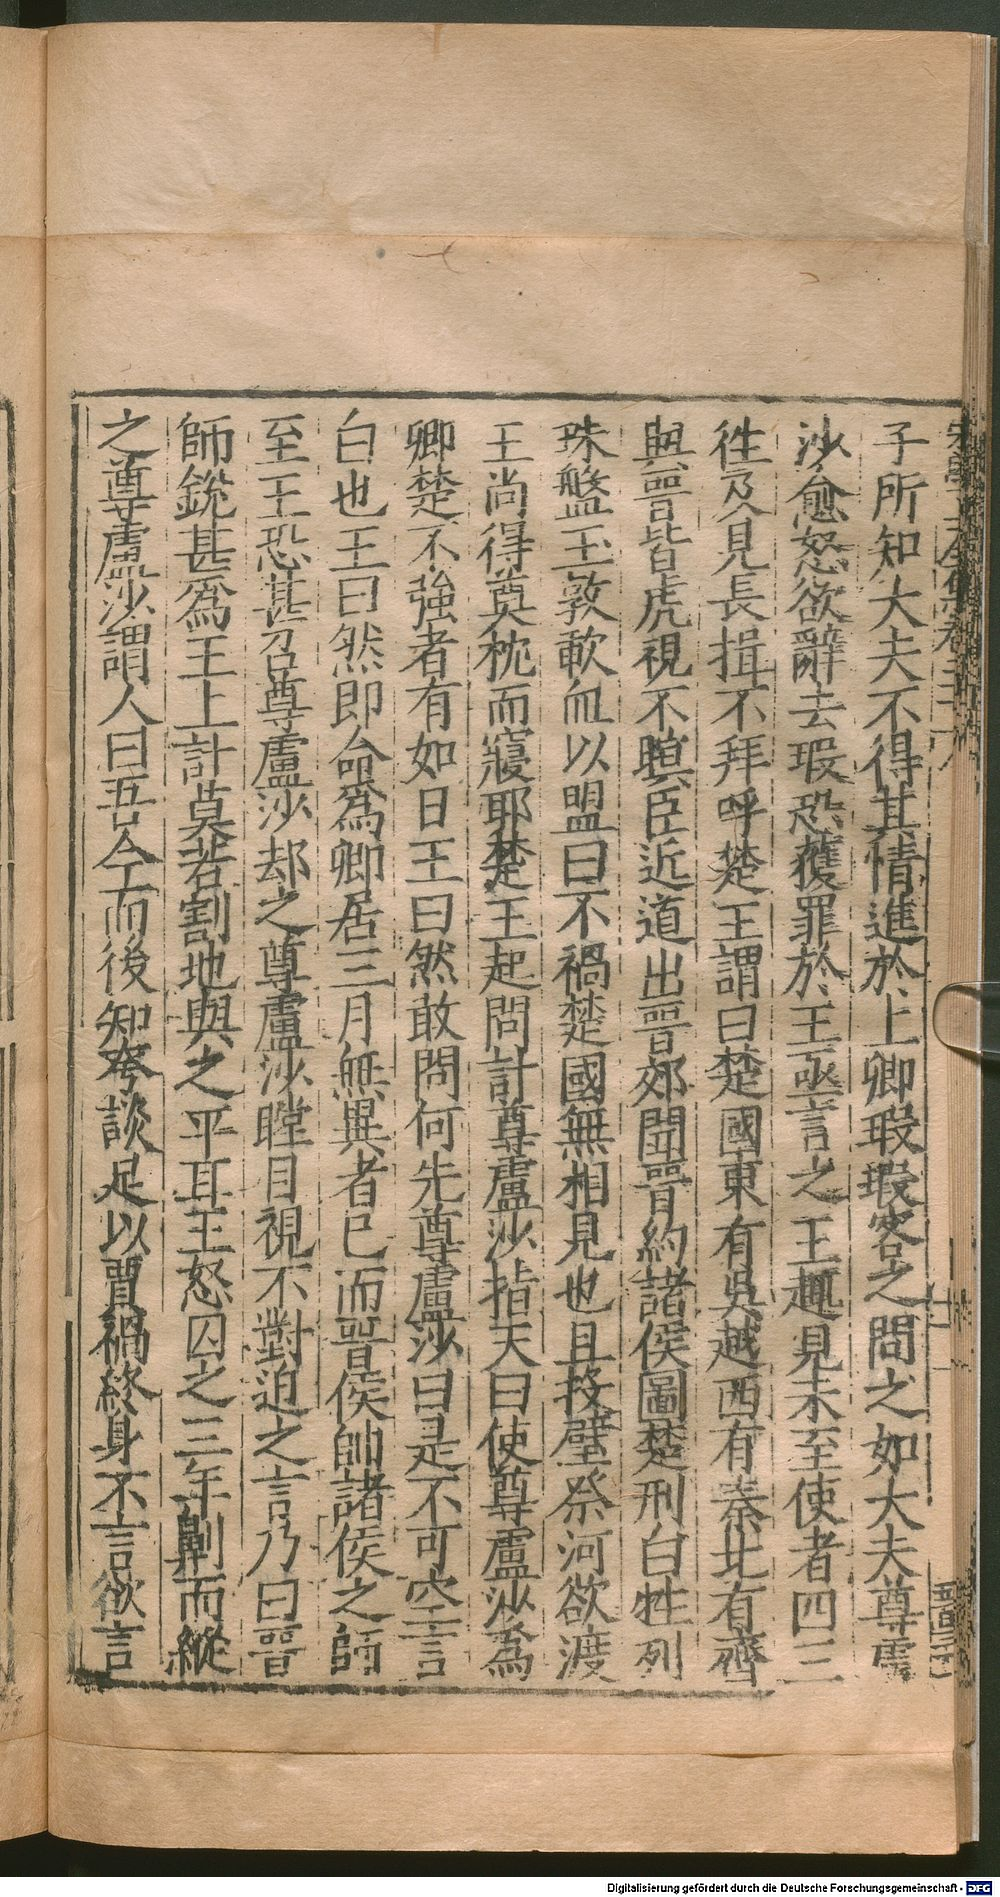 子所知大夫不得其情進於上卿瑕瑕客之問之如大夫尊盧
沙愈怒欲辭去瑕恐獲罪於王亟言之王趣見未至使者四三
徃及見長揖不拜呼楚王謂曰楚國東有吳越西有秦北有齊
與晉皆虎視不瞑臣近道出晉郊聞晉約諸侯圖楚刑白牲列
珠盤玉敦歃血以盟曰不禍楚國無相見也且投璧祭河欲渡
王尚得奠枕而寢耶楚王起問計尊盧沙指天曰使尊盧沙為
卿楚不強者有如日王曰然敢問何先尊盧沙曰是不可空言
白也王曰然即命為卿居三月無異者已而晉侯帥諸侯之師
至王恐甚召尊盧沙却之尊盧沙瞠目視不對迫之言乃曰晉
師銳甚為王上計莫若割地與之平耳王怒囚之三年劓而縱
之尊盧沙謂人曰吾今而後知夸談足以賈禍終身不言欲言
Digitalisierung gefördert durch die Deutsche Forschungsgemeinschaft - DFG